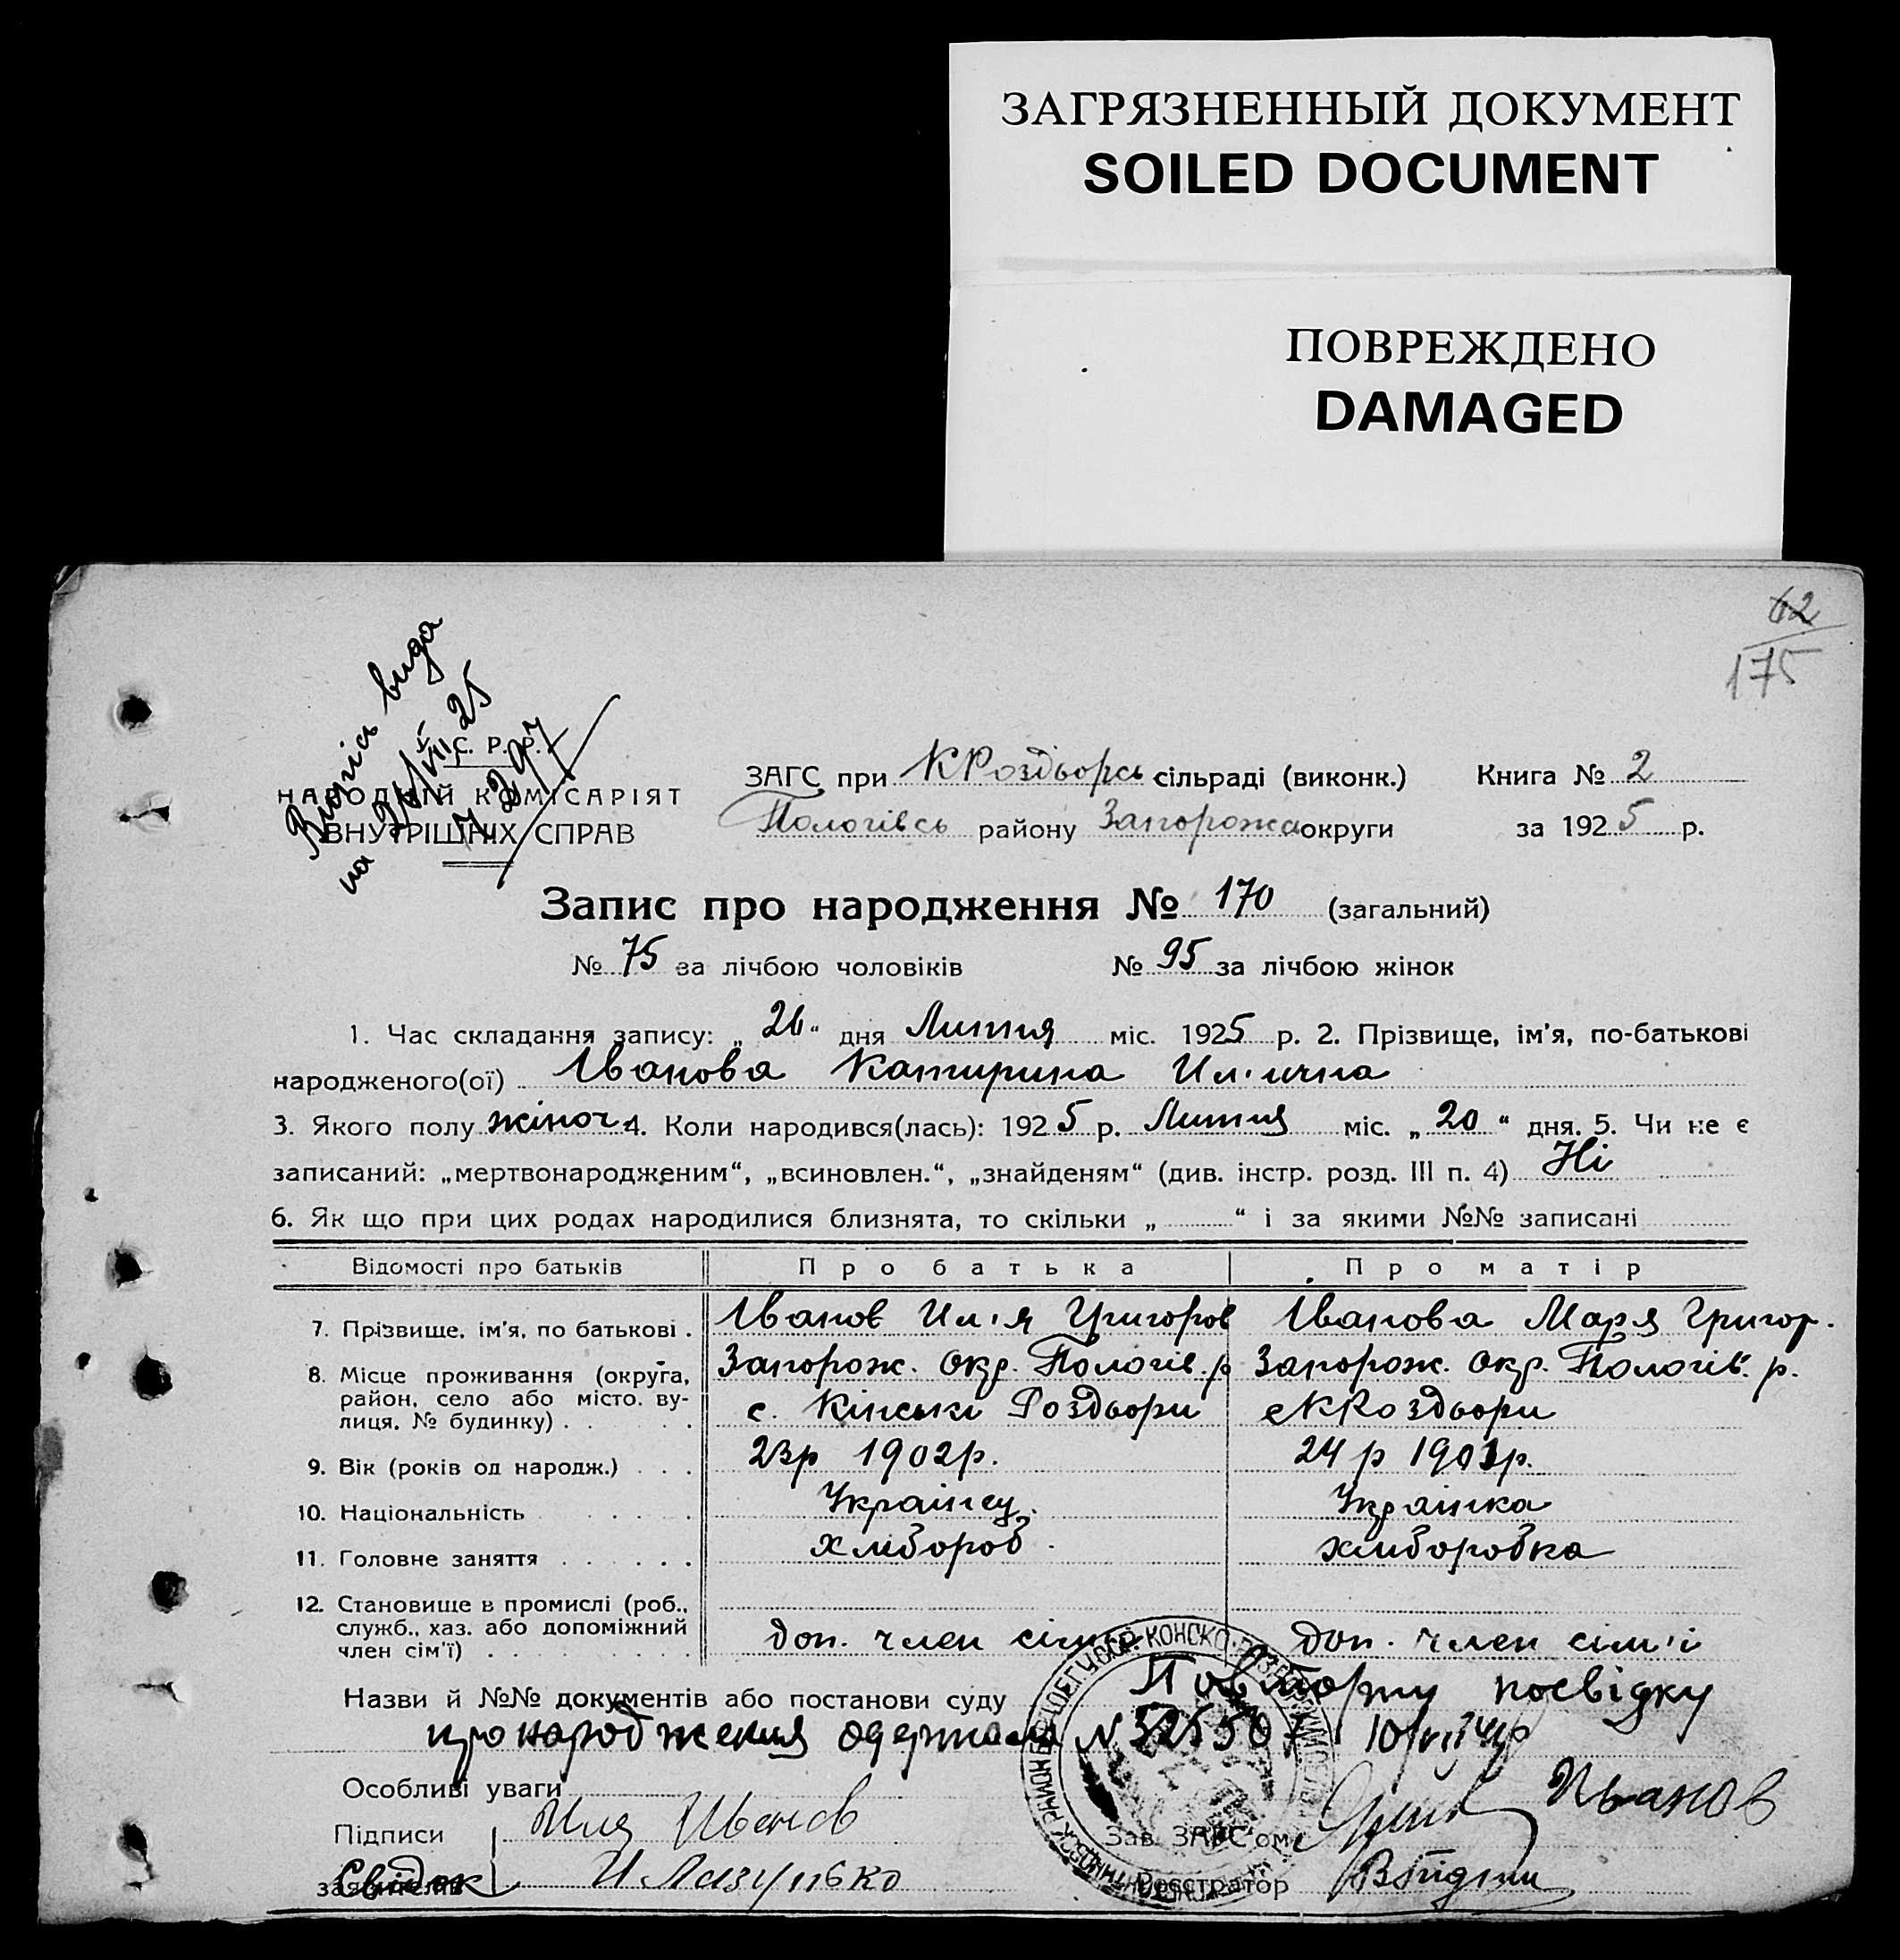 ЗАГРЯЗНЕННЫЙ ДОКУМЕНТ
SOILED DOCUMENT
ПОВРЕЖДЕНО
DAMAGED
62
175
Випись вида
на VII 25
У. С. Р. Р.
НАРОДНІЙ КОМІСАРІЯТ
ВНУТРІШНІХ СПРАВ
ЗАГС при КРоздворсь сільраді (виконк.) Книга № 2
Пологівсь району Запорожа округи за 1925 р.
Запис про народження № 170 (загальний)
№ 75 за лічбою чоловіків № 95 за лічбою жінок
1. Час складання запису: „ 26 “ дня Липня міс. 1925 р. 2. Прізвище, ім’я, по-батькові
народженого(ої) Іванова Катирина Ил'ична
3. Якого полу жіноч. 4. Коли народився(лась): 1925 р. Липня міс. „ 20 “ дня. 5. Чи не є
записаний: „мертвонародженим“, „всиновлен.“, „знайденям“ (див. інстр. розд. III п. 4) Ні
6. Як що при цих родах народилися близнята, то скільки „ “ і за якими №№ записані
Відомості про батьків Про батька Про матір
7. Прізвище, ім’я, по батькові . Іванов Ил'я Григоров Іванова Маря Григор.
8. Місце проживання (округа, Запорож. Окр. Пологів. р Запорож. Окр. Пологів. р.
район, село або місто, ву-
лиця, № будинку) . . . с. Кінські Роздвори с КРоздвори
9. Вік (років од народж.) . . . 23р 1902р. 24 р 1901р.
10. Національність . . . . . Українец. Українка
11. Головне заняття . . . . . . хлібороб. хліборобка
12. Становище в промислі (роб.,
служб., хаз. або допоміжний
член сім’ї) . . . . . . . . . доп. член сімьи доп. член сім'ї
Назви й №№ документів або постанови суду Повторну посвідку
про народження одержала N 525507 10/VII 41р
Особливі уваги
Підписи Иля Иванов Зав. ЗАГС’ом Иванов
заявителів Свідок И Лазунько Реєстратор